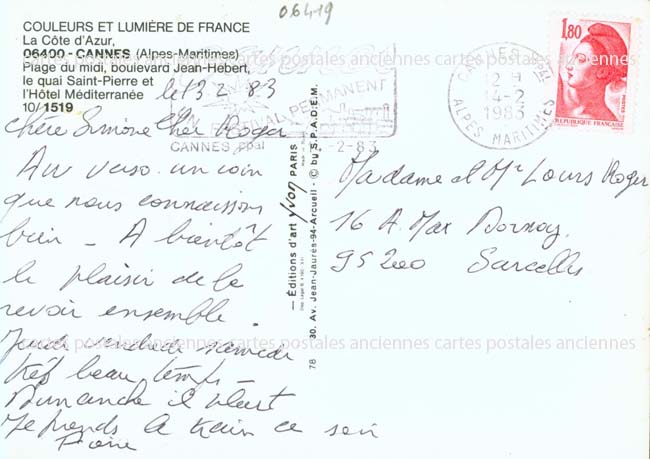 06419
COULEURS ET LUMIÈRE DE FRANCE
La Côte d'Azur,
06400 - CANNES (Alpes-Maritimes)
Plage du midi, boulevard Jean-Hebert,
le quai Saint-Pierre et
l'Hôtel Méditerranée
10/1519
le 13 2 83
Chère Simone Cher Roger
Au verso un coin
que nous connaissons
bien - A bientôt
le plaisir de le
revoir ensemble
Jeudi vendredi samedi
très beau temps -
Dimanche il pleut
Je prends le train ce soir
Pierre
FESTIVAL PERMANENT
CANNES ppal
-2-83
CANNES
12 H
14-2
1983
ALPES MARITIMES
1,80
REPUBLIQUE FRANÇAISE
Madame et Mr Louis Roger
16 A. Max Dormoy
95200 Sarcelles
— Éditions d'art yvon PARIS
78 30, Av. Jean-Jaurès-94-Arcueil - © by S.P.A.D.E.M.
cartes postales anciennes cartes postales anciennes cartes postales anciennes